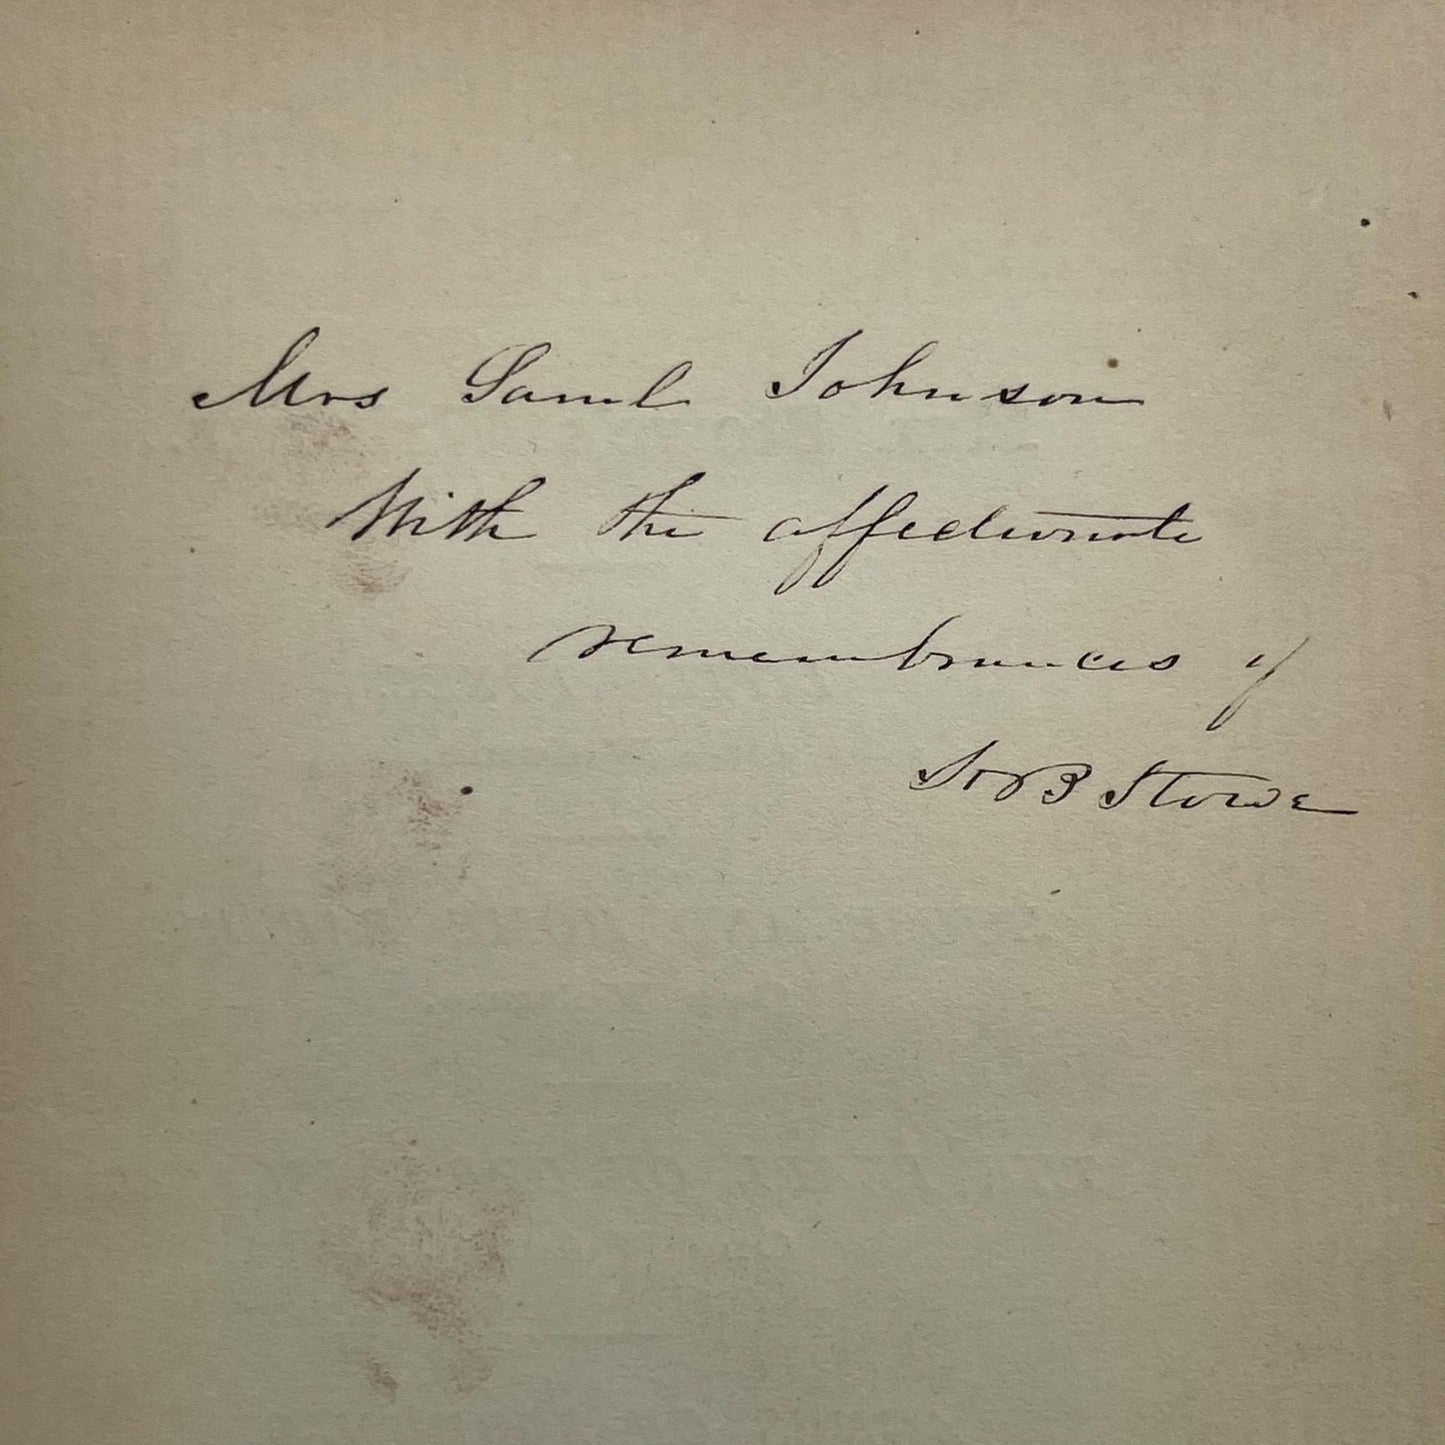 Mrs Saml Johnson
With the affectionate
remembrances of
H B Stowe